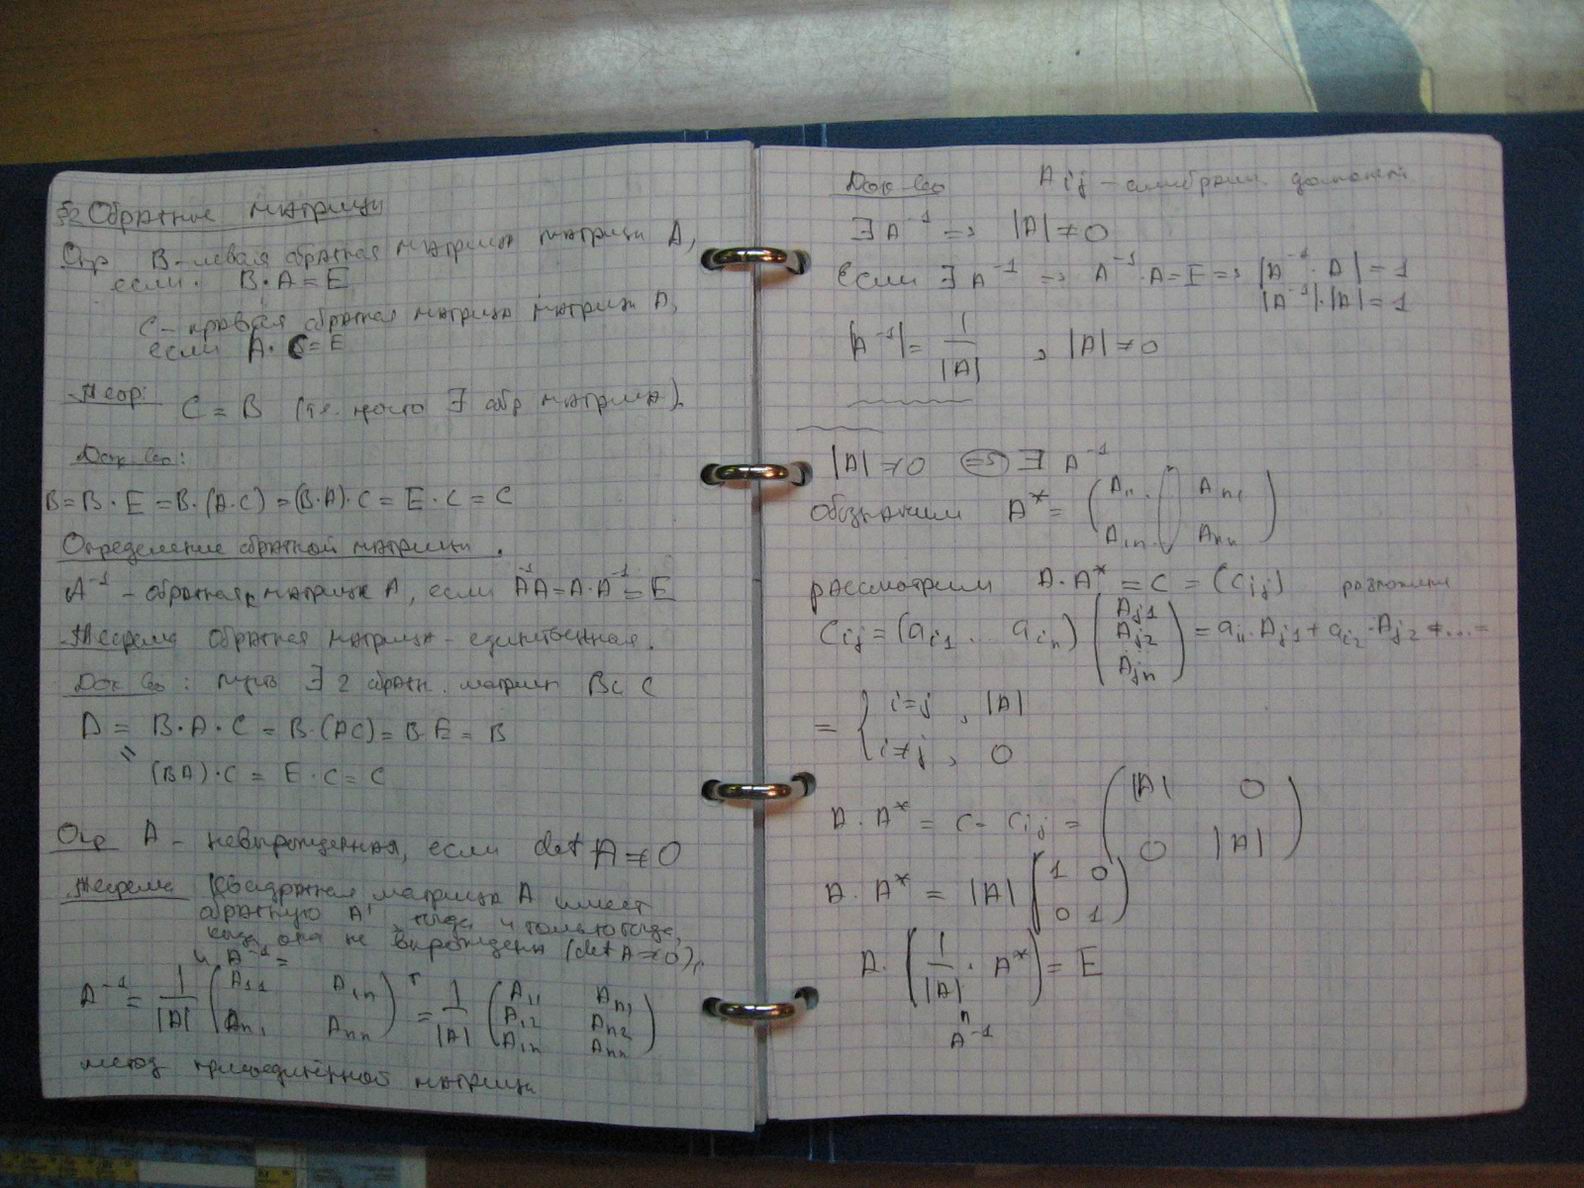 §2 Обратные матрицы
Опр B - левая обратная матрица матрицы A,
если B·A=E
C - правая обратная матрица матрицы A,
если A·C=E
Теор: C = B (т.е. ∃ обр матрица).
Док-во:
B=B·E=B·(A·C)=(B·A)·C=E·C=C
Определение обратной матрицы.
A⁻¹ - обратная матрица A, если A⁻¹A=A·A⁻¹=E
Теорема обратная матрица - единственная.
Док-во: пусть ∃ 2 обратн. матрицы B и C
D = B·A·C = B·(AC)=B·E=B
"
(BA)·C = E·C=C
Опр A - невырожденная, если det A≠0
Теорема Квадратная матрица A имеет
обратную A⁻¹ тогда и только тогда,
когда она не вырождена (det A≠0),
и A⁻¹=
A⁻¹ = 1/|A| (A₁₁ A₁ₙ / Aₙ₁ Aₙₙ)ᵀ = 1/|A| (A₁₁ Aₙ₁ / A₁₂ Aₙ₂ / A₁ₙ Aₙₙ)
метод присоединённой матрицы
Док-во Aᵢⱼ - дополнен
∃ A⁻¹ => |A|≠0
Если ∃ A⁻¹ => A⁻¹·A=E => |A⁻¹·A|=1
|A⁻¹|·|A|=1
|A⁻¹|= 1/|A| , |A|≠0
|A|≠0 => ∃ A⁻¹
обозначим A*= (A₁₁ Aₙ₁ / A₁ₙ Aₙₙ)
рассмотрим A·A* = C = (Cᵢⱼ) разложим
Cᵢⱼ=(aᵢ₁ ... aᵢₙ) (Aⱼ₁ / Aⱼ₂ / Aⱼₙ) = aᵢ₁·Aⱼ₁ + aᵢ₂·Aⱼ₂ +...=
= { i=j , |A|
i≠j , 0
A·A* = C = Cᵢⱼ = (|A| 0 / 0 |A|)
A·A* = |A| (1 0 / 0 1)
A·(1/|A| · A*) = E
"
A⁻¹